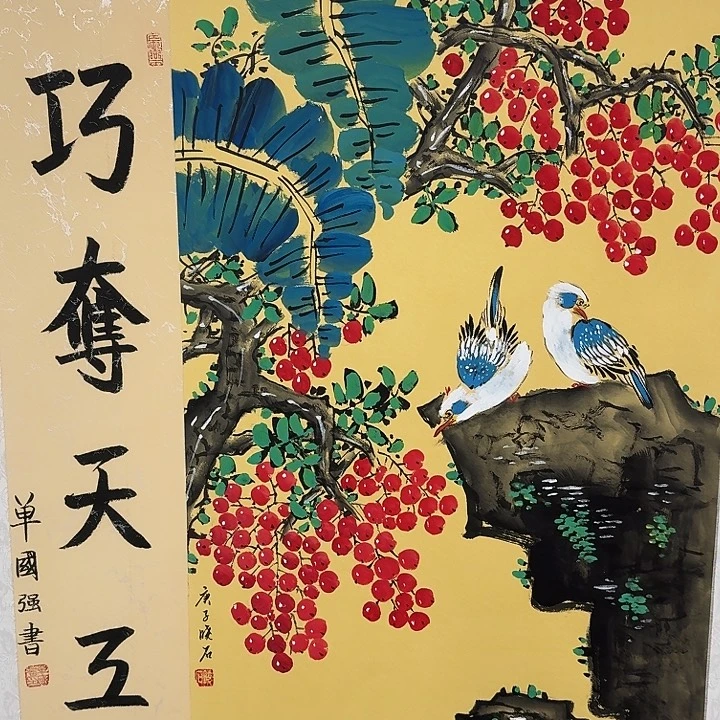 巧奪天工
单國强書
庚子暎石